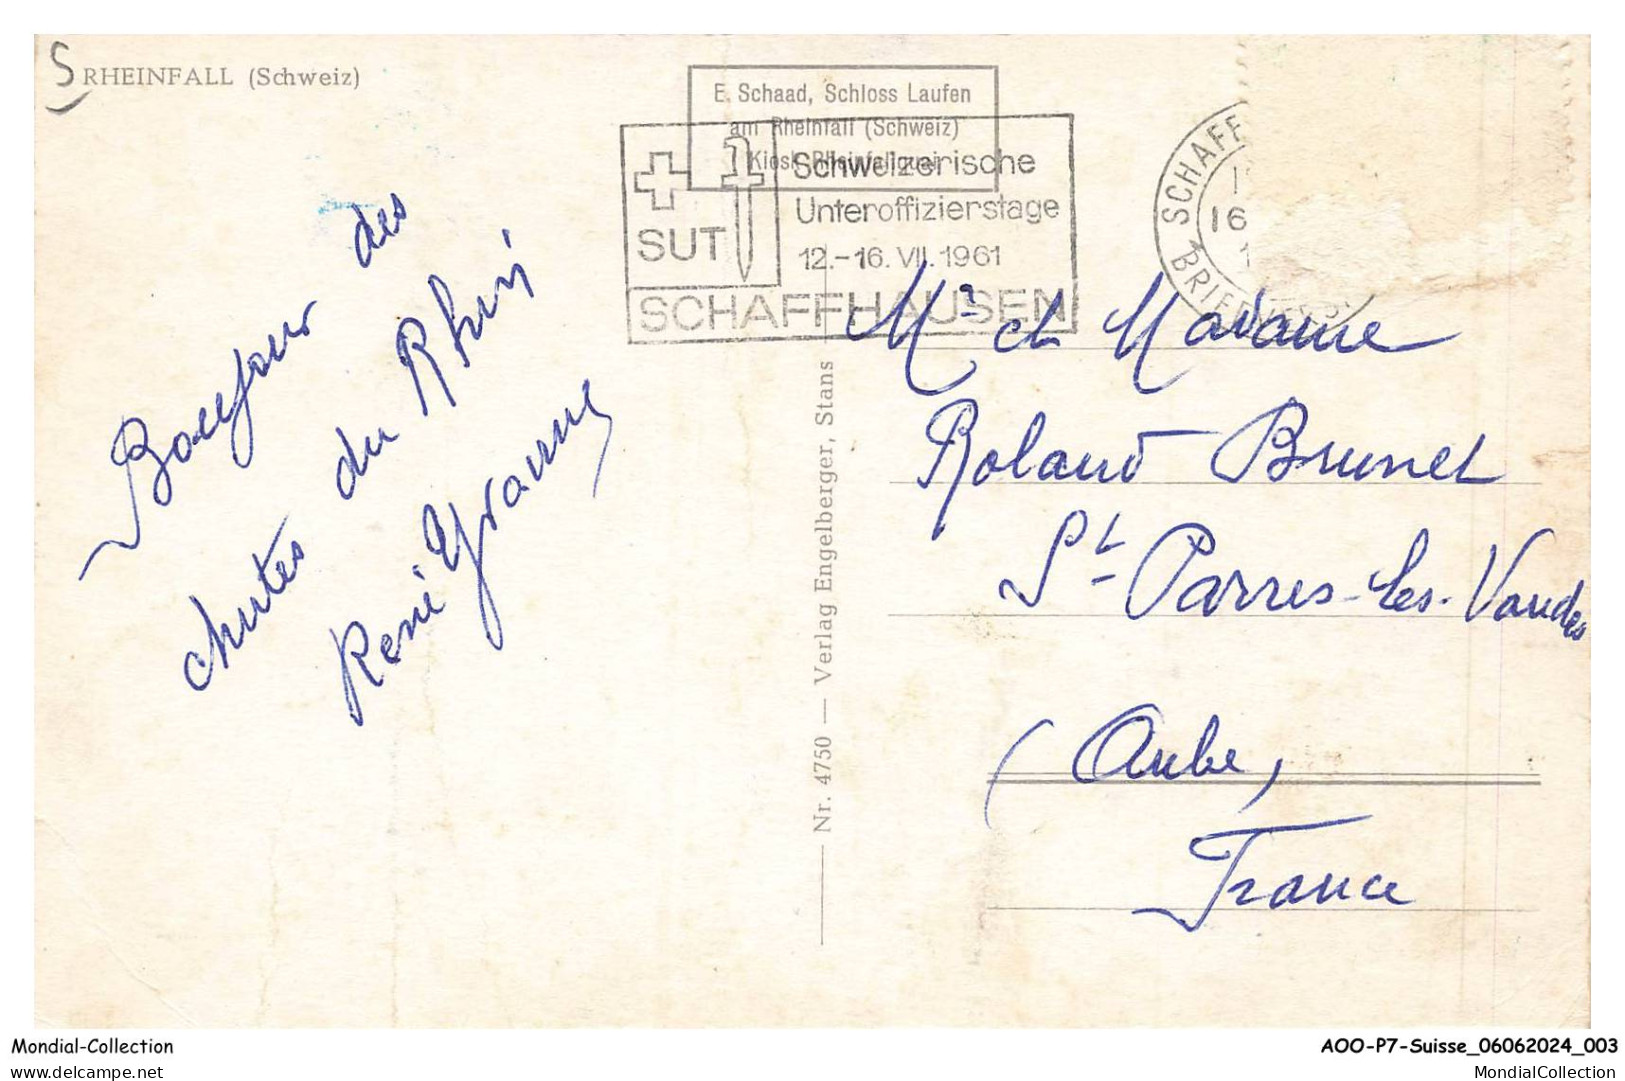 S RHEINFALL (Schweiz)
E. Schaad, Schloss Laufen
am Rheinfall (Schweiz)
Kiosk Rheinfallquai
SUT
Schweizerische
Unteroffizierstage
12.-16. VII. 1961
SCHAFFHAUSEN
SCHAFF
16
BRIEF
Bonjour des
chutes du Rhin
René
Nr. 4750 — Verlag Engelberger, Stans
Mr et Madame
Roland Brunet
St-Parres-les-Vaudes
(Aube,
France
Mondial-Collection
AOO-P7-Suisse_06062024_003
MondialCollection